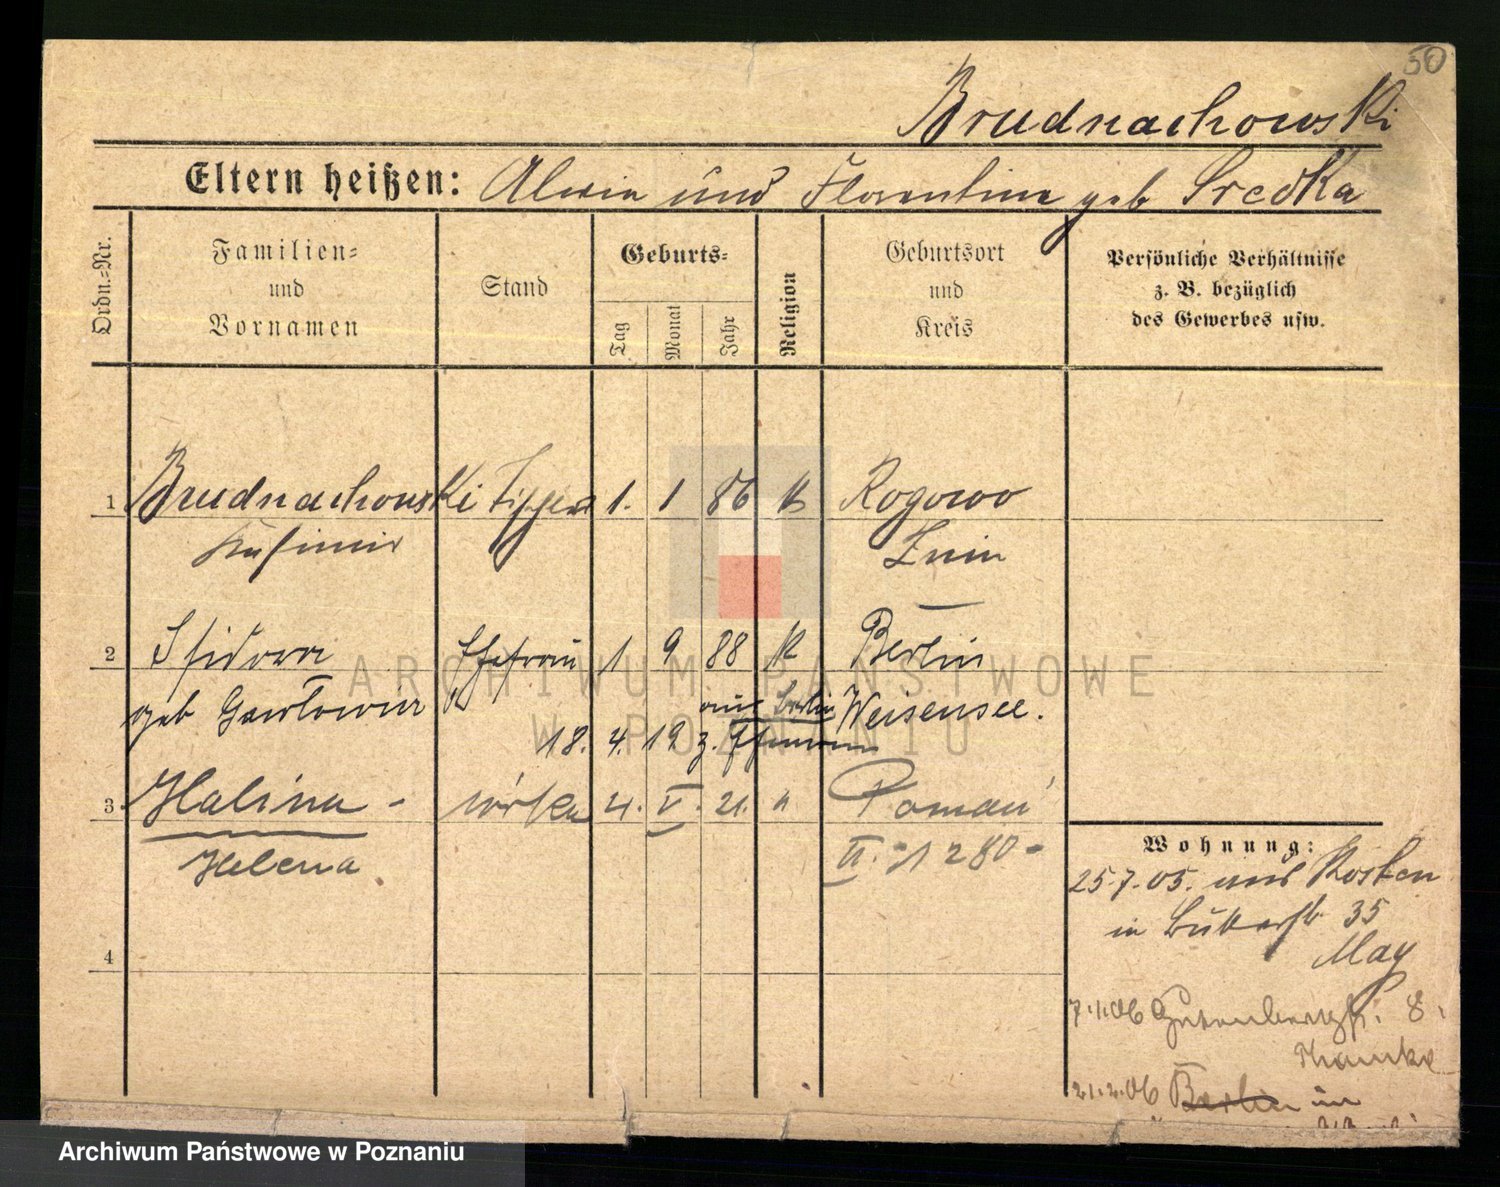 50
Brudnachowski
Eltern heißen: Alwin und Florentine geb Sredka
Ordn.-Nr.
Familien-
und
Vornamen
Stand
Geburts-
Tag
Monat
Jahr
Religion
Geburtsort
und
Kreis
Persönliche Verhältnisse
z. B. bezüglich
des Gewerbes usw.
1 Brudnachowski 1. 1 86 k Rogowo
Kasimir Znin
2 Isidora Ehefrau 1 9 88 k Berlin
geb aus Berlin Weisensee.
18. 4. 19 z. Ehemann
3 Halina - córka 4. V. 21. " Poznań
Helena II. - 1280 -
4
Wohnung:
25.7.05. aus Kosten
in Butterstr 35
May
7.1.06 8.
21.2.06 Berlin in
ARCHIWUM PAŃSTWOWE
W POZNANIU
Archiwum Państwowe w Poznaniu